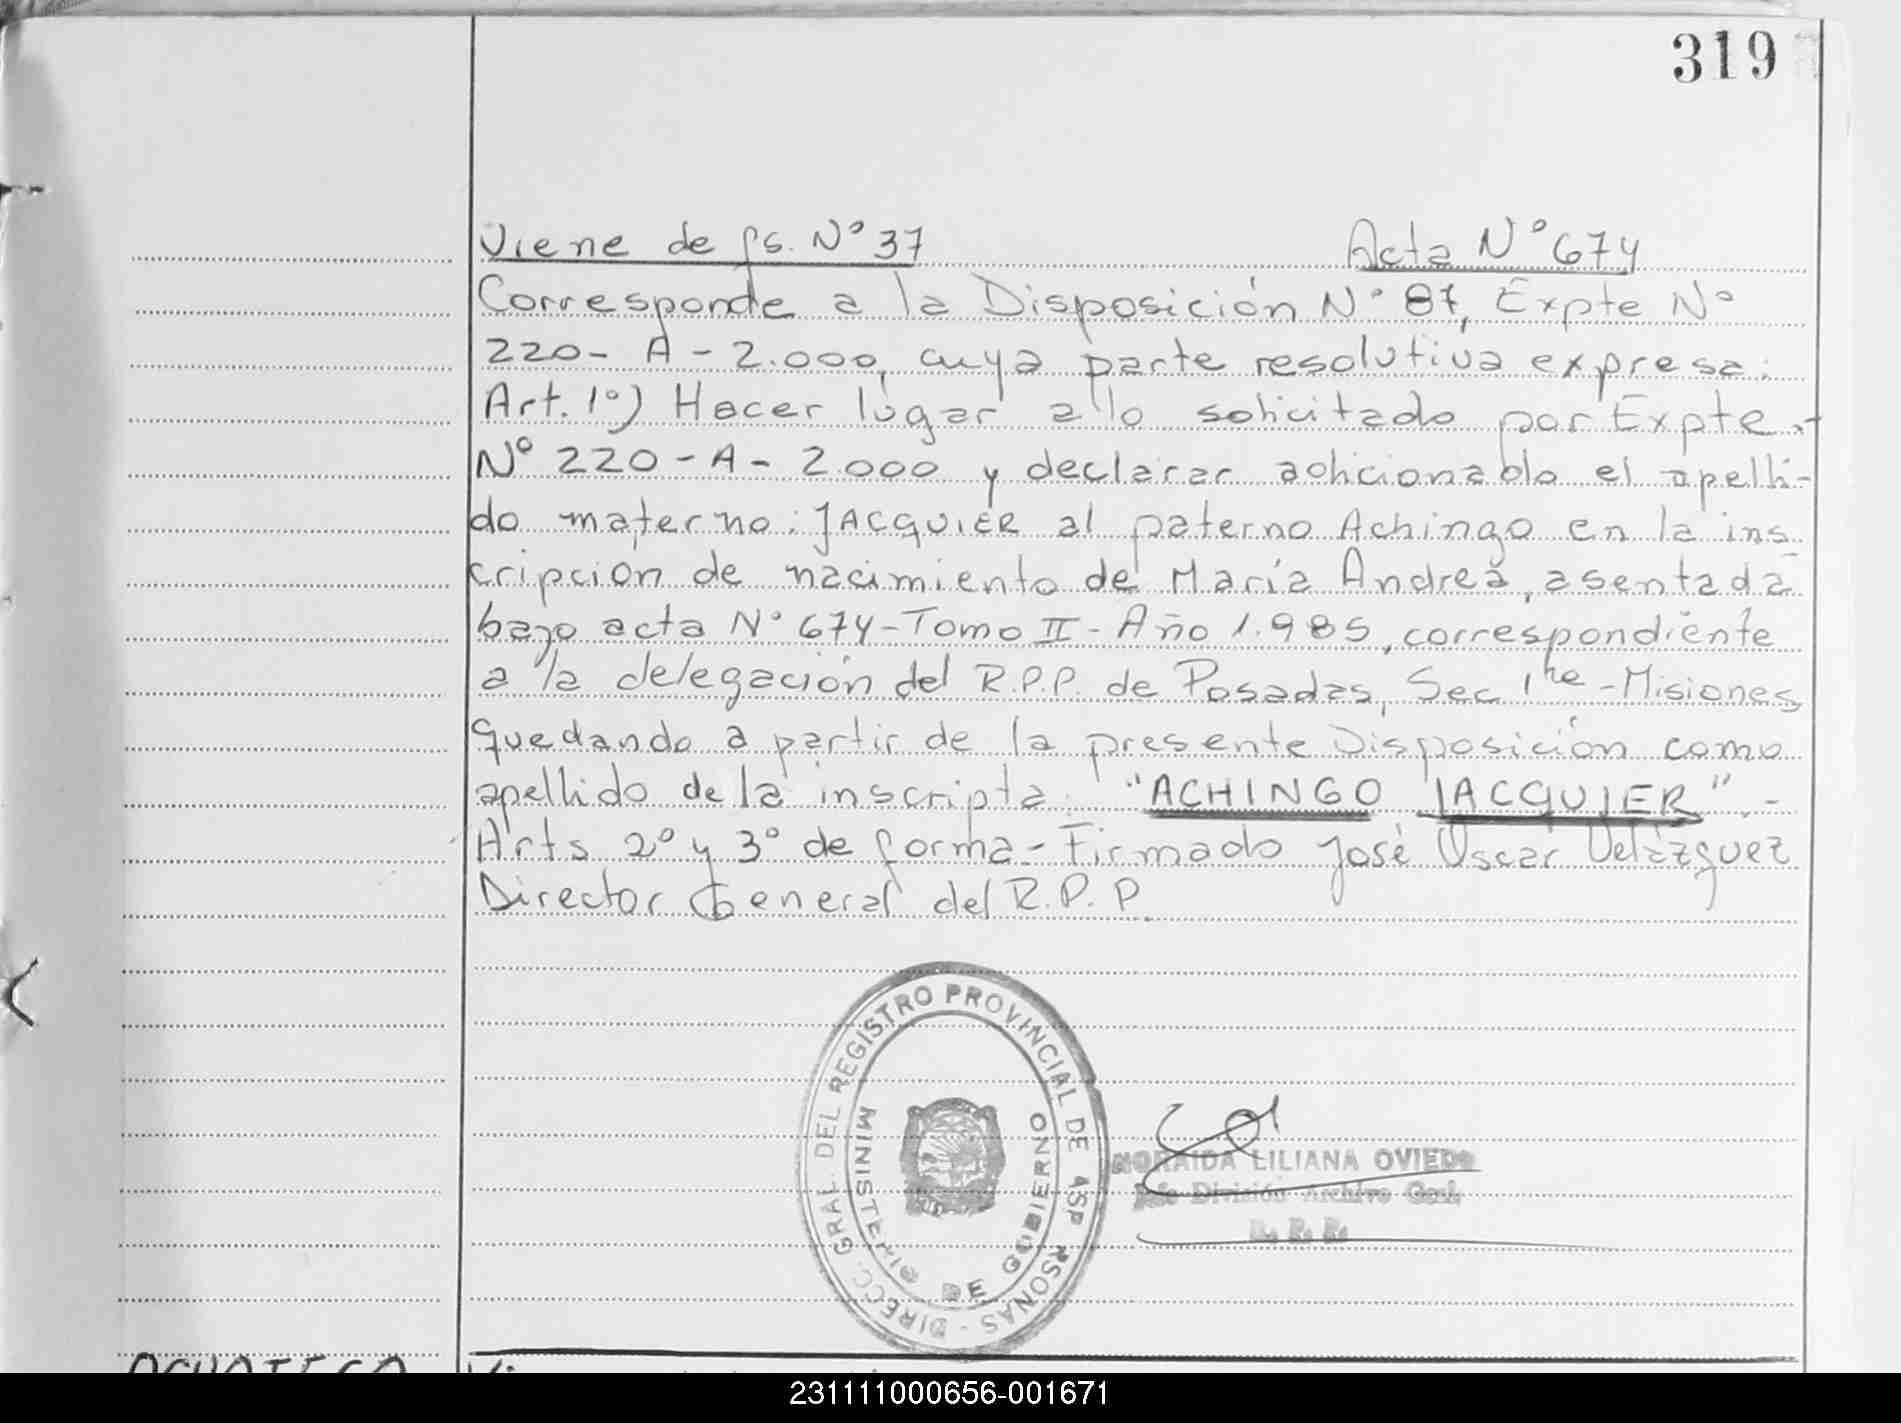 319
Viene de fs. Nº 37 Acta Nº 674
Corresponde a la Disposición Nº 87, Expte Nº
220- A - 2.000, cuya parte resolutiva expresa:
Art. 1º) Hacer lugar a lo solicitado por Expte.
Nº 220 - A - 2.000 y declarar adicionado el apelli-
do materno: JACQUIER al paterno Achingo en la ins
cripción de nacimiento de María Andrea, asentada
bajo acta Nº 674 - Tomo II - Año 1.985, correspondiente
a la delegación del R.P.P. de Posadas, Sec 1ra - Misiones
quedando a partir de la presente Disposición como
apellido de la inscripta: "ACHINGO JACQUIER" -
Arts 2º y 3º de forma - Firmado José Oscar Velázquez
Director General del R.P.P.
DIRECC. GRAL. DEL REGISTRO PROVINCIAL DE
MINISTERIO DE GOBIERNO
NORAIDA LILIANA OVIEDO
Jefe División Archivo Gral.
R. P. P.
231111000656-001671